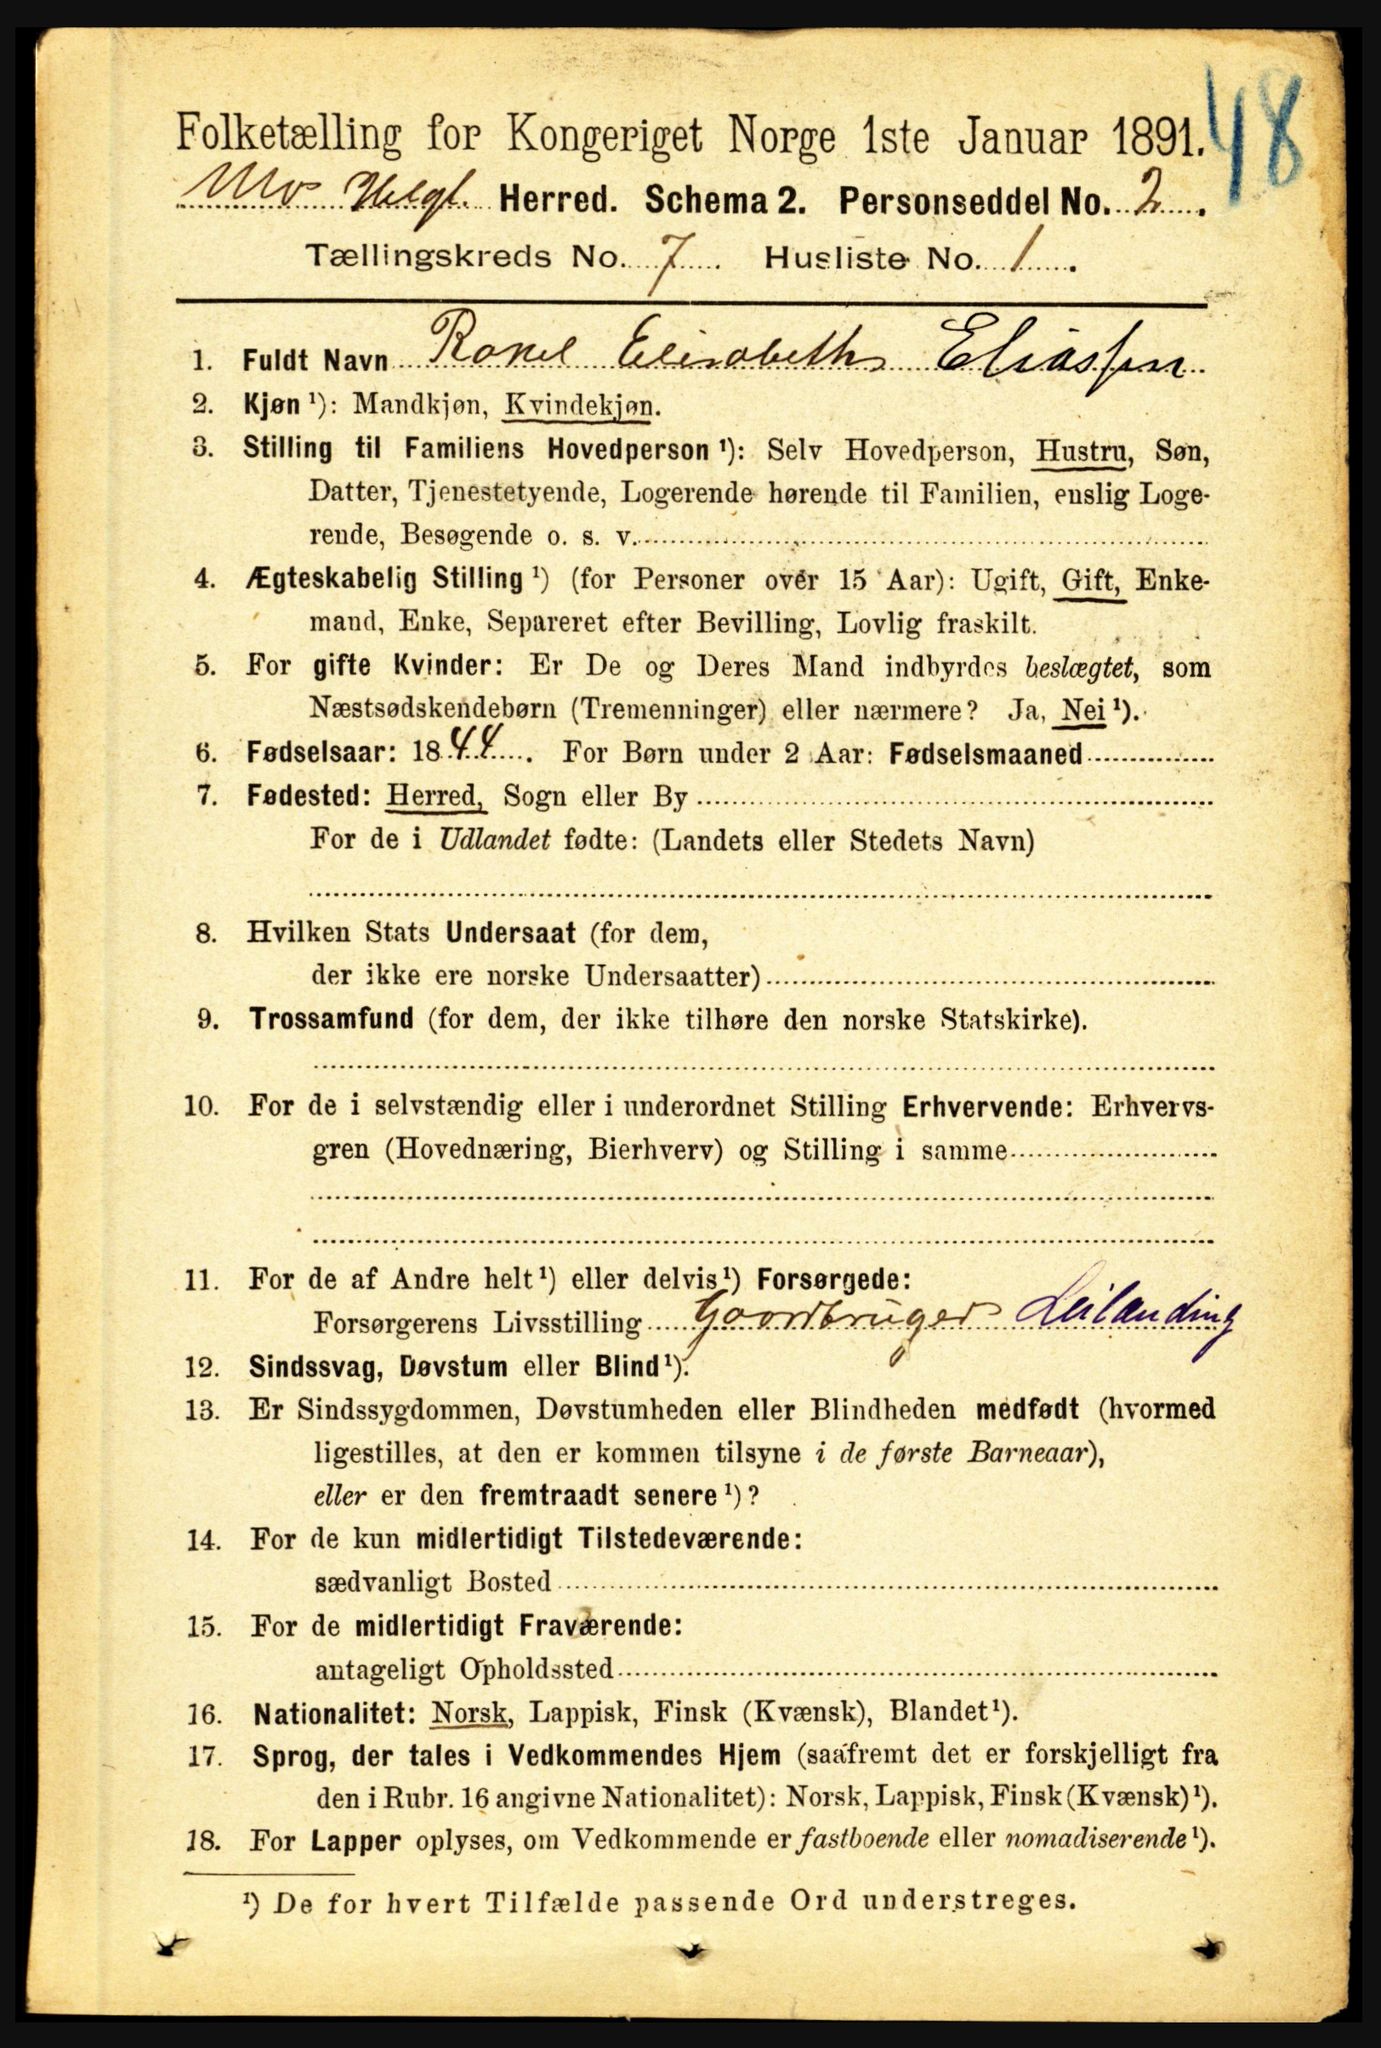 48
Folketælling for Kongeriget Norge 1ste Januar 1891.
Mo Helgl. Herred. Schema 2. Personseddel No. 2.
Tællingskreds No. 7 Husliste No. 1.
1. Fuldt Navn Rakel Elisabeth Eliassen
2. Kjøn ¹): Mandkjøn, Kvindekjøn.
3. Stilling til Familiens Hovedperson ¹): Selv Hovedperson, Hustru, Søn,
Datter, Tjenestetyende, Logerende hørende til Familien, enslig Loge-
rende, Besøgende o. s. v.
4. Ægteskabelig Stilling ¹) (for Personer over 15 Aar): Ugift, Gift, Enke-
mand, Enke, Separeret efter Bevilling, Lovlig fraskilt.
5. For gifte Kvinder: Er De og Deres Mand indbyrdes beslægtet, som
Næstsødskendebørn (Tremenninger) eller nærmere? Ja, Nei ¹).
6. Fødselsaar: 1844. For Børn under 2 Aar: Fødselsmaaned
7. Fødested: Herred, Sogn eller By
For de i Udlandet fødte: (Landets eller Stedets Navn)
8. Hvilken Stats Undersaat (for dem,
der ikke ere norske Undersaatter)
9. Trossamfund (for dem, der ikke tilhøre den norske Statskirke).
10. For de i selvstændig eller i underordnet Stilling Erhvervende: Erhvervs-
gren (Hovednæring, Bierhverv) og Stilling i samme
11. For de af Andre helt ¹) eller delvis ¹) Forsørgede:
Forsørgerens Livsstilling Gaardbruger Leilænding
12. Sindssvag, Døvstum eller Blind ¹).
13. Er Sindssygdommen, Døvstumheden eller Blindheden medfødt (hvormed
ligestilles, at den er kommen tilsyne i de første Barneaar),
eller er den fremtraadt senere ¹)?
14. For de kun midlertidigt Tilstedeværende:
sædvanligt Bosted
15. For de midlertidigt Fraværende:
antageligt Opholdssted
16. Nationalitet: Norsk, Lappisk, Finsk (Kvænsk), Blandet ¹).
17. Sprog, der tales i Vedkommendes Hjem (saafremt det er forskjelligt fra
den i Rubr. 16 angivne Nationalitet): Norsk, Lappisk, Finsk (Kvænsk) ¹).
18. For Lapper oplyses, om Vedkommende er fastboende eller nomadiserende ¹).
¹) De for hvert Tilfælde passende Ord understreges.